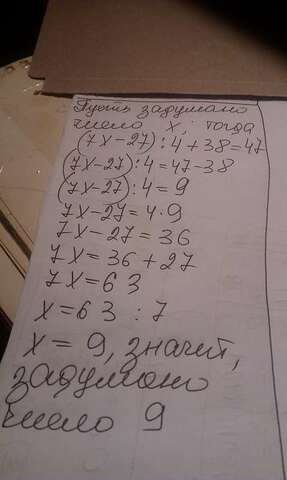 Пусть задумано
число x, тогда
(7x-27):4+38=47
(7x-27):4=47-38
(7x-27):4=9
7x-27=4·9
7x-27=36
7x=36+27
7x=63
x=63:7
x=9, значит,
задумано
число 9